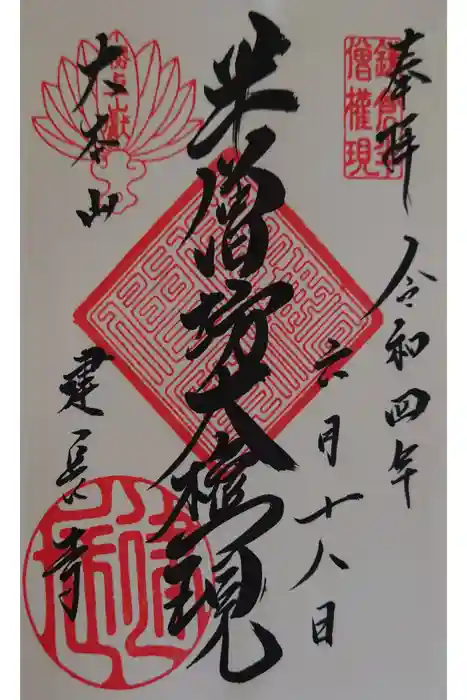 奉拝
鎌倉半
僧權現
令和四年
六月十八日
半僧坊大権現
勝上嶽
大本山
建長寺